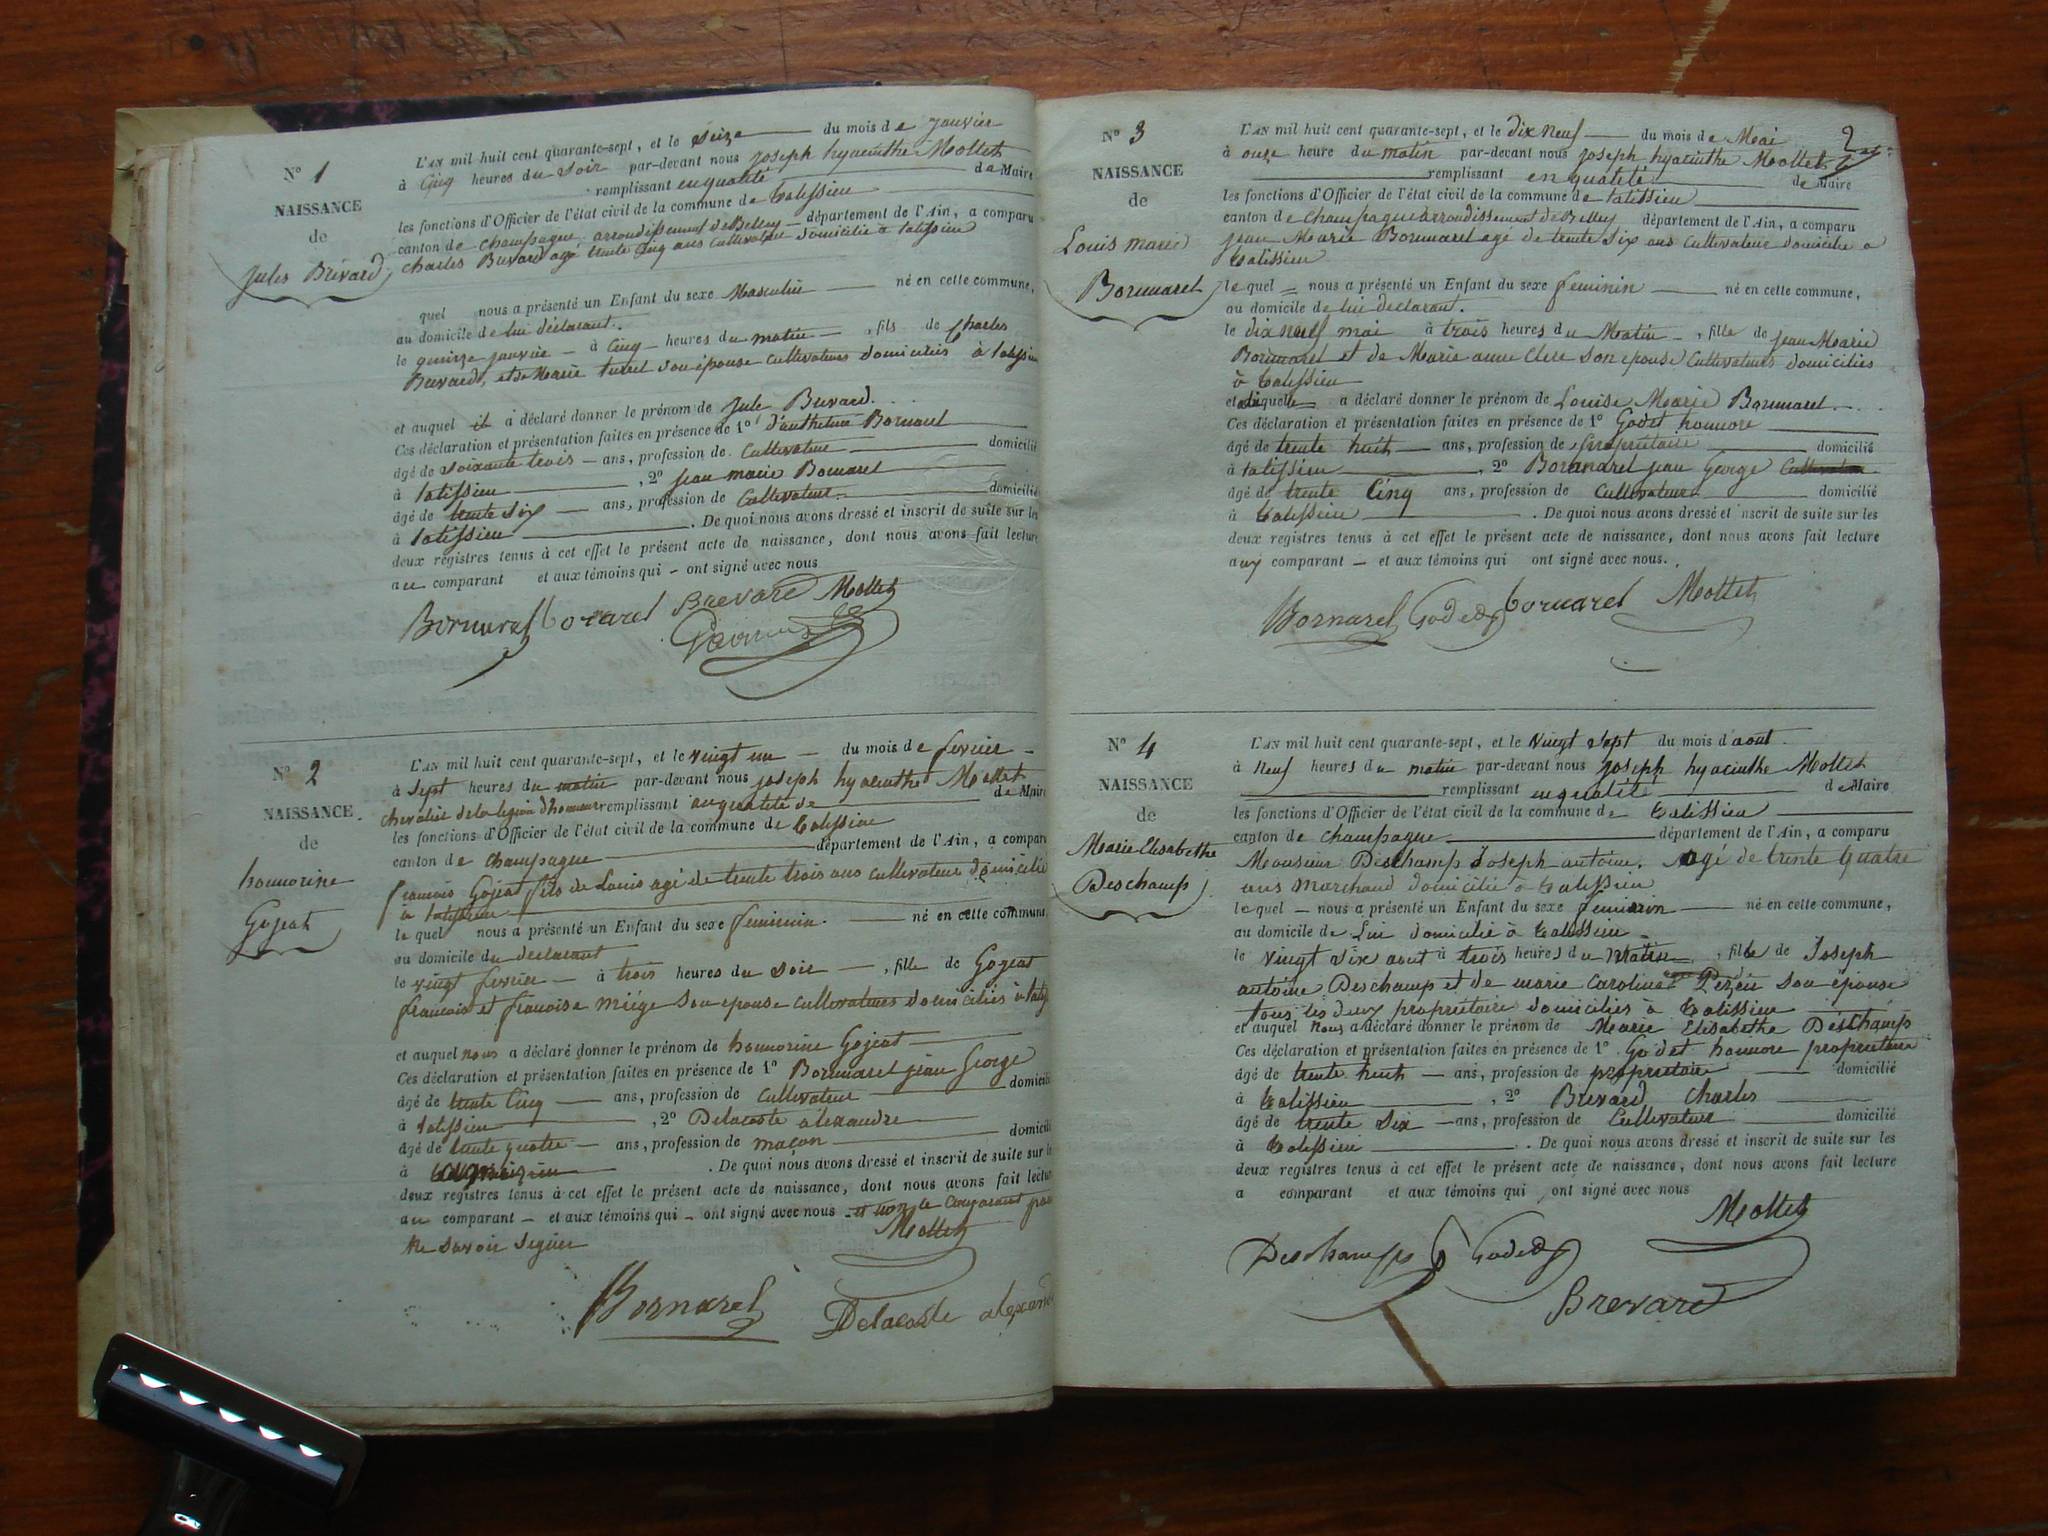 N° 1
NAISSANCE
de
Jules Brévard
L'AN mil huit cent quarante-sept, et le Seize du mois de janvier
à Cinq heures du Soir par-devant nous joseph hyacinthe Mollet
remplissant en qualité de Maire
les fonctions d'Officier de l'état civil de la commune de talissieu
canton de champagne arrondissement de Belley département de l'Ain, a comparu
charles Buvard agé trente Cinq ans Cultivateur domicilié a talissieu
quel nous a présenté un Enfant du sexe Masculin né en cette commune,
au domicile de lui déclarant.
le quinze janvier à Cinq heures du matin, fils de Charles
Buvard, et de Marie son épouse cultivateurs domiciliés à talissieu
et auquel il a déclaré donner le prénom de Jule Buvard.
Ces déclaration et présentation faites en présence de 1° Bornarel
âgé de soixante trois ans, profession de Cultivateur domicilié
à talissieu, 2° jean marie Bornarel
âgé de trente six ans, profession de Cultivateur domicilié
à talissieu. De quoi nous avons dressé et inscrit de suite sur les
deux registres tenus à cet effet le présent acte de naissance, dont nous avons fait lecture
au comparant et aux témoins qui ont signé avec nous
Bornarel bornarel Brevard Mollet
N° 2
NAISSANCE
de
honnorine
Gojeat
L'AN mil huit cent quarante-sept, et le vingt un du mois de fevrier
à Sept heures du matin par-devant nous joseph hyacinthe Mollet
chevalier de la legion d'honneur remplissant en qualité de de Maire
les fonctions d'Officier de l'état civil de la commune de talissieu
canton de champagne département de l'Ain, a comparu
francois Gojeat fils de Louis agé de trente trois ans cultivateur domicilié
à talissieu
le quel nous a présenté un Enfant du sexe feminin. né en cette commune,
au domicile du declarant
le vingt fevrier à trois heures du soir, fille de Gojeat
francois et francoise miége son epouse cultivateurs domiciliés à
et auquel nous a déclaré donner le prénom de honnorine Gojeat
Ces déclaration et présentation faites en présence de 1° Bornarel jean George
âgé de trente Cinq ans, profession de Cultivateur domicilié
à talissieu, 2° Delacoste alexandre
âgé de trente quatre ans, profession de maçon domicilié
à. De quoi nous avons dressé et inscrit de suite sur les
deux registres tenus à cet effet le présent acte de naissance, dont nous avons fait lecture
au comparant et aux témoins qui ont signé avec nous et non le Comparant pour
Ne savoir signer
Mollet
Bornarel Delacoste
N° 3
NAISSANCE
de
Louis marie
Bornarel
2
L'AN mil huit cent quarante-sept, et le dix neuf du mois de Mai
à onze heure du matin par-devant nous joseph hyacinthe Mollet
remplissant en qualité de Maire
les fonctions d'Officier de l'état civil de la commune de talissieu
canton de champagne arrondissement de Belley département de l'Ain, a comparu
jean Marie Bornarel agé de trente six ans Cultivateur domicilié a
talissieu
le quel nous a présenté un Enfant du sexe feminin né en cette commune,
au domicile de lui declarant.
le dix neuf mai à trois heures du Matin, fille de jean Marie
Bornarel et de Marie anne Clerc son epouse Cultivateurs domiciliés
à talissieu
a déclaré donner le prénom de Louise Marie Bornarel.
Ces déclaration et présentation faites en présence de 1° Godet honnore
âgé de trente huit ans, profession de Proprietaire domicilié
à talissieu, 2° Bornarel jean George Cultivateur
âgé de trente Cinq ans, profession de Cultivateur domicilié
à talissieu. De quoi nous avons dressé et inscrit de suite sur les
deux registres tenus à cet effet le présent acte de naissance, dont nous avons fait lecture
aux comparant et aux témoins qui ont signé avec nous.
Bornarel Godet bornarel Mollet
N° 4
NAISSANCE
de
Marie Elisabethe
Deschamp
L'AN mil huit cent quarante-sept, et le Vingt Sept du mois d'aout
à Neuf heures du matin par-devant nous joseph hyacinthe Mollet
remplissant en qualité de Maire
les fonctions d'Officier de l'état civil de la commune de talissieu
canton de champagne département de l'Ain, a comparu
Monsieur Deschamp Joseph antoine. agé de trente quatre
ans Marchand domicilié à talissieu
le quel nous a présenté un Enfant du sexe feminin né en cette commune,
au domicile de Lui domicilié à talissieu
le vingt six aout à trois heures du Matin, fille de Joseph
antoine Deschamp et de marie caroline son épouse
tous les deux proprietaire domiciliés à talissieu
et auquel nous a déclaré donner le prénom de Marie Elisabethe Deschamp
Ces déclaration et présentation faites en présence de 1° Godet honnore proprietaire
âgé de trente huit ans, profession de proprietaire domicilié
à talissieu, 2° Brevard Charles
âgé de trente Six ans, profession de Cultivateur domicilié
à talissieu. De quoi nous avons dressé et inscrit de suite sur les
deux registres tenus à cet effet le présent acte de naissance, dont nous avons fait lecture
a comparant et aux témoins qui ont signé avec nous
Mollet
Deschamps Godet
Brevard